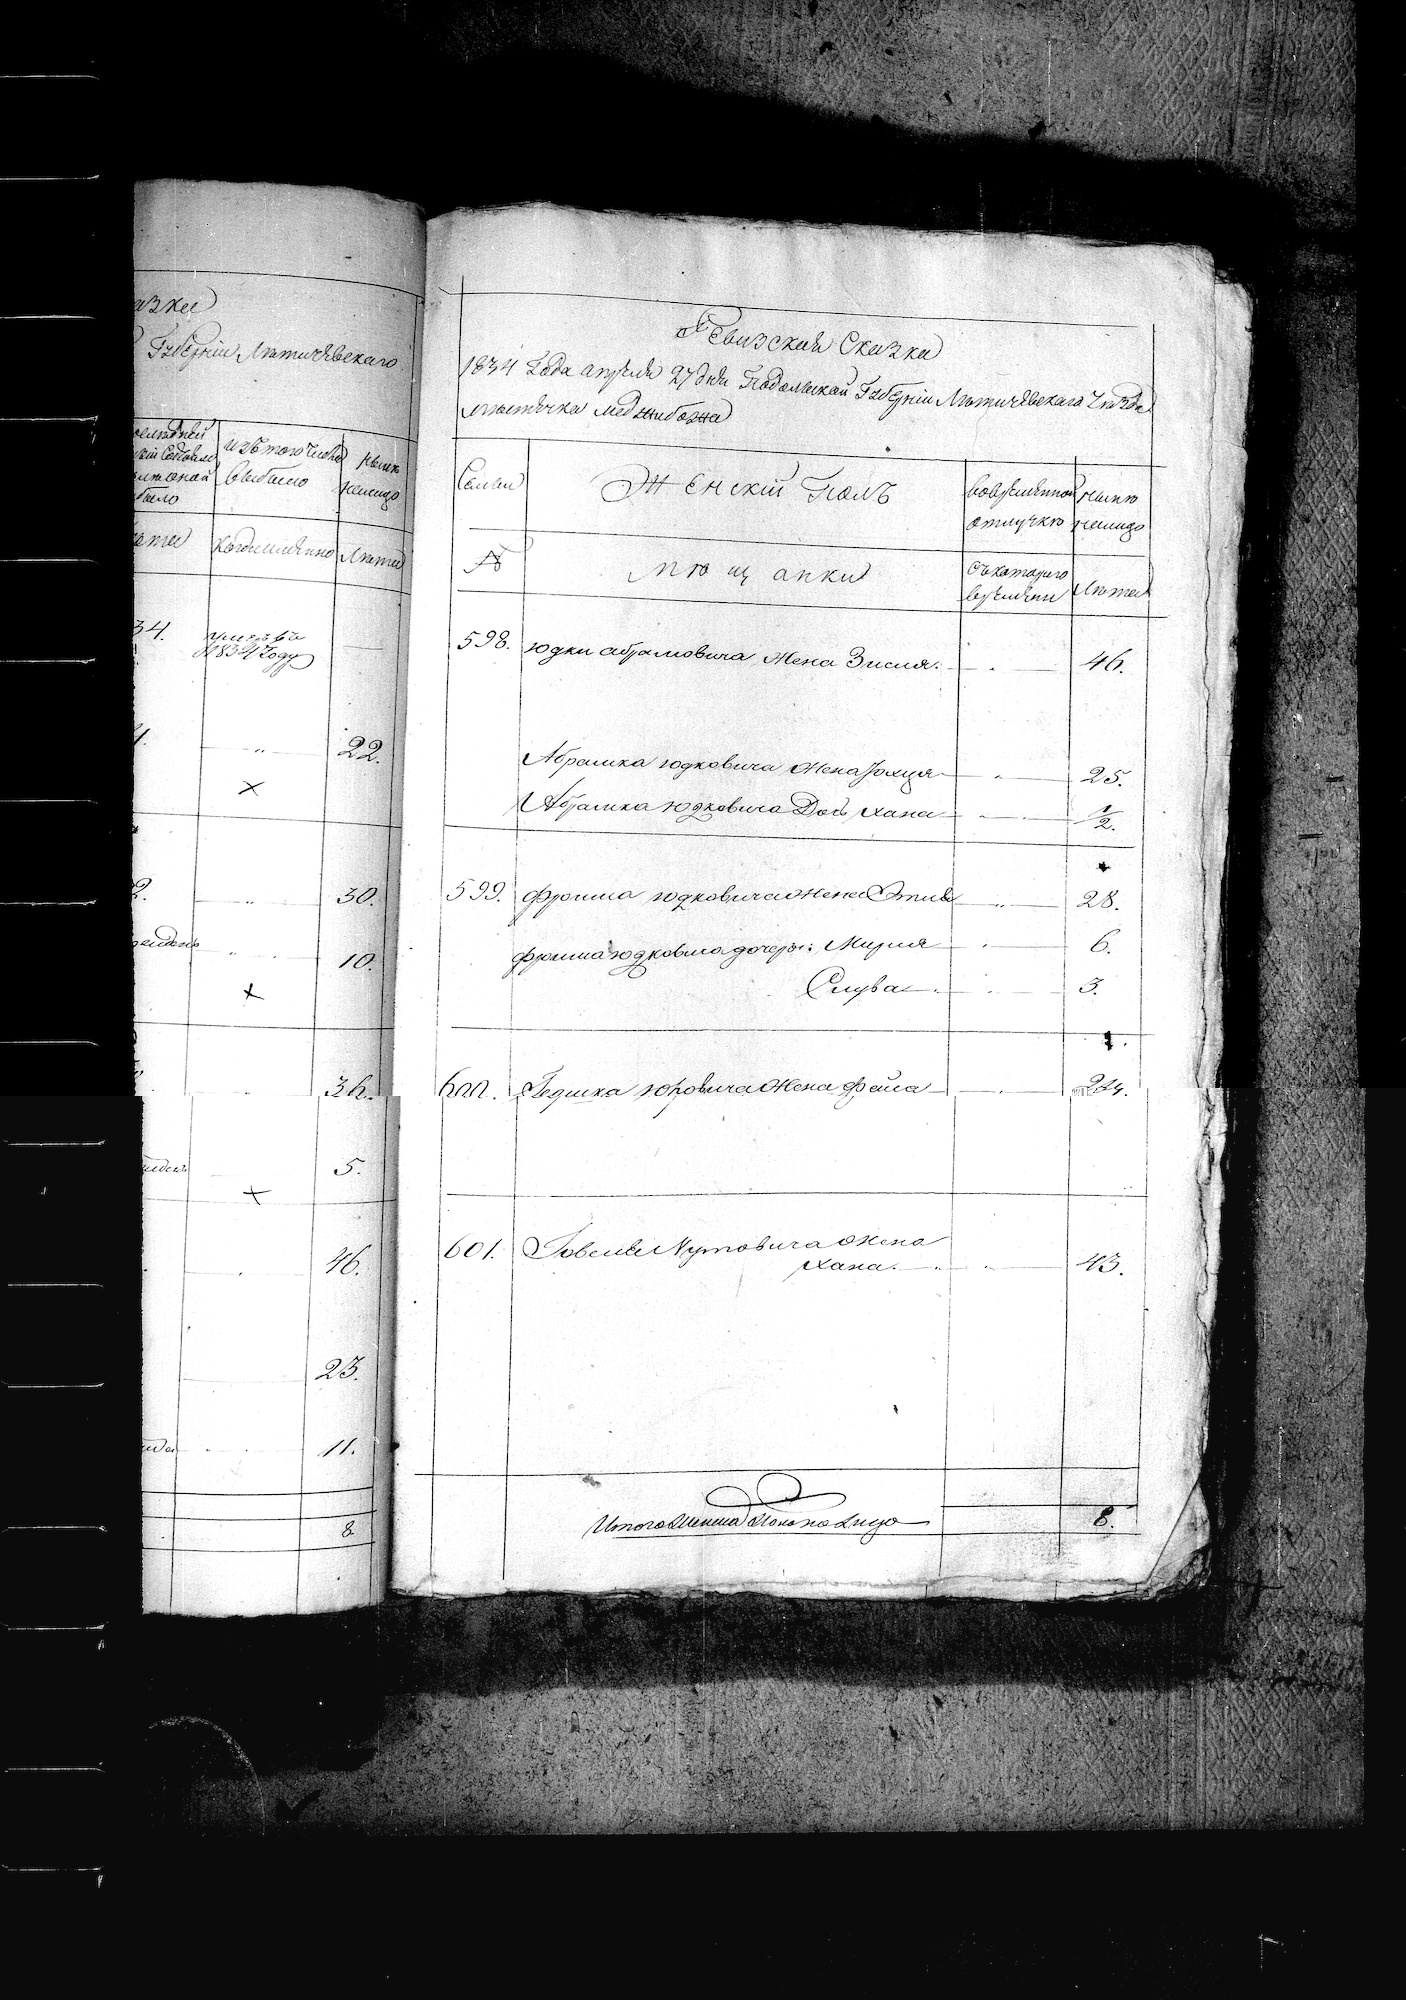 азка
Губерніи Летичевскаго
изъ того числа
выбыло
ныне
налицо
лета
когда имянно
Лета
34.
умеръ въ
1834 году
22.
30.
10.
36.
5.
46.
23.
11.
8
Ревизская Сказка
1834 Года апреля 27 дня Подольской Губерніи Летичевскаго Уезда
местечка Меджибожа
Семьи
Женскій Полъ
вовременной
отлучке
ныне
налицо
№
мещанки
съкотораго
времяни
Лета
598. юдки абрамовича Жена Зисля 46.
Абрамка юдковича жена 25.
Абрамка юдковича Дочь хана 1/2.
599. фроима юдковича жена Этля 28.
фроима юдковича дочери: Мирля 6.
Слува 3.
600. Гедилка юровича жена файга 24.
601. Говеля Мутовича жена
хана 43.
Итого Женска Пола на лицо 8.